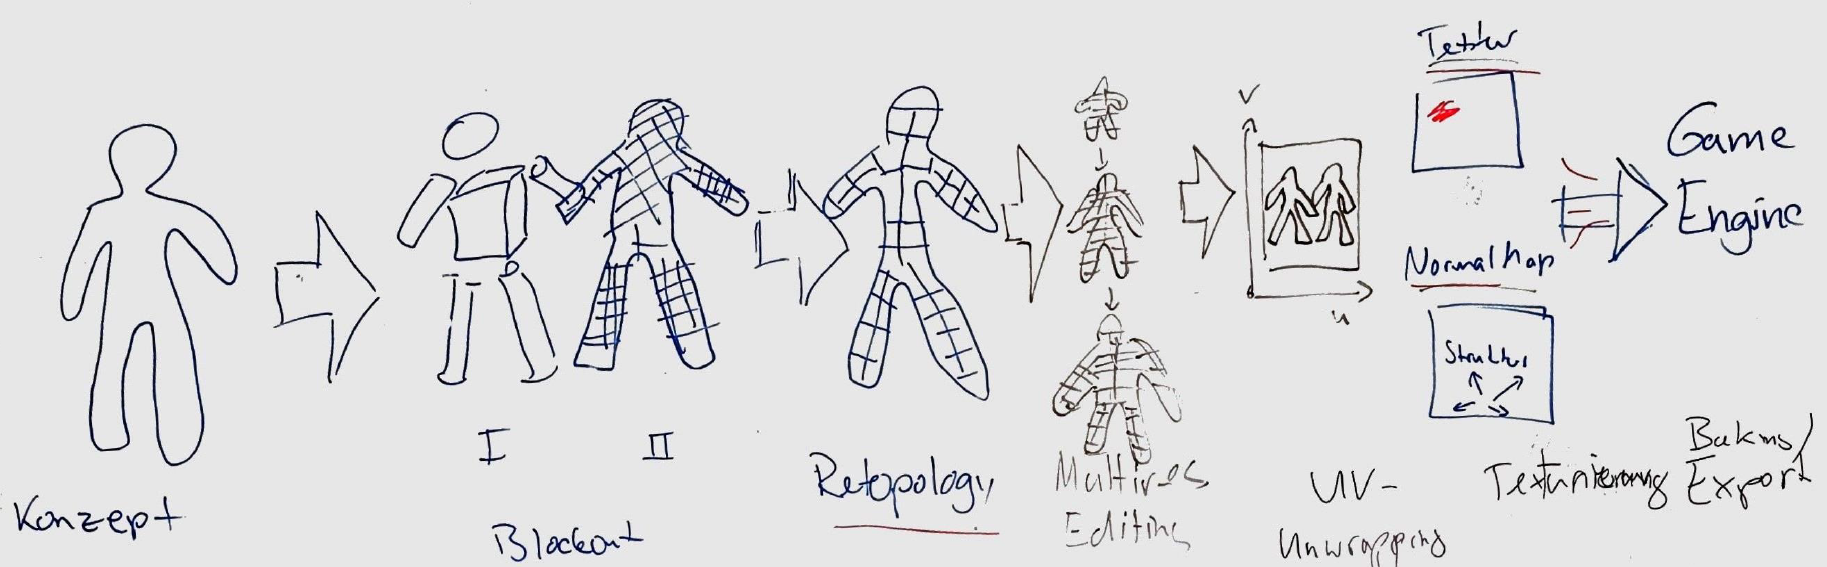 Konzept
I
II
Blockout
Retopology
Multires
Editing
V
u
UV-
Unwrapping
Textur
Normal Map
Struktur
Texturierung
Game
Engine
Baking/
Export